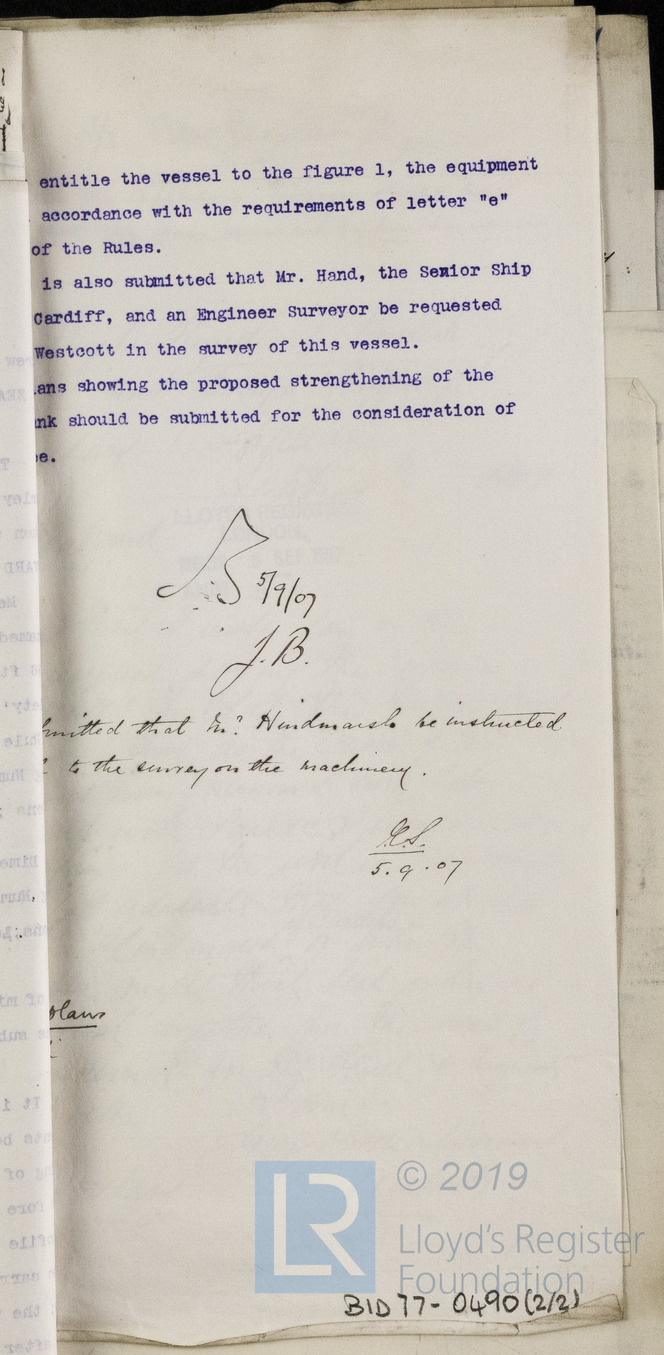 entitle the vessel to the figure 1, the equipment
accordance with the requirements of letter "e"
of the Rules.
is also submitted that Mr. Hand, the Senior Ship
Cardiff, and an Engineer Surveyor be requested
Westcott in the survey of this vessel.
ans showing the proposed strengthening of the
nk should be submitted for the consideration of
e.
5/9/07
J.B.
mitted that Mr. Hindmarsh be instructed
to the survey on the machinery.
5.9.07
plans
LR
© 2019
Lloyd's Register
Foundation
BID77-0490(2/2)